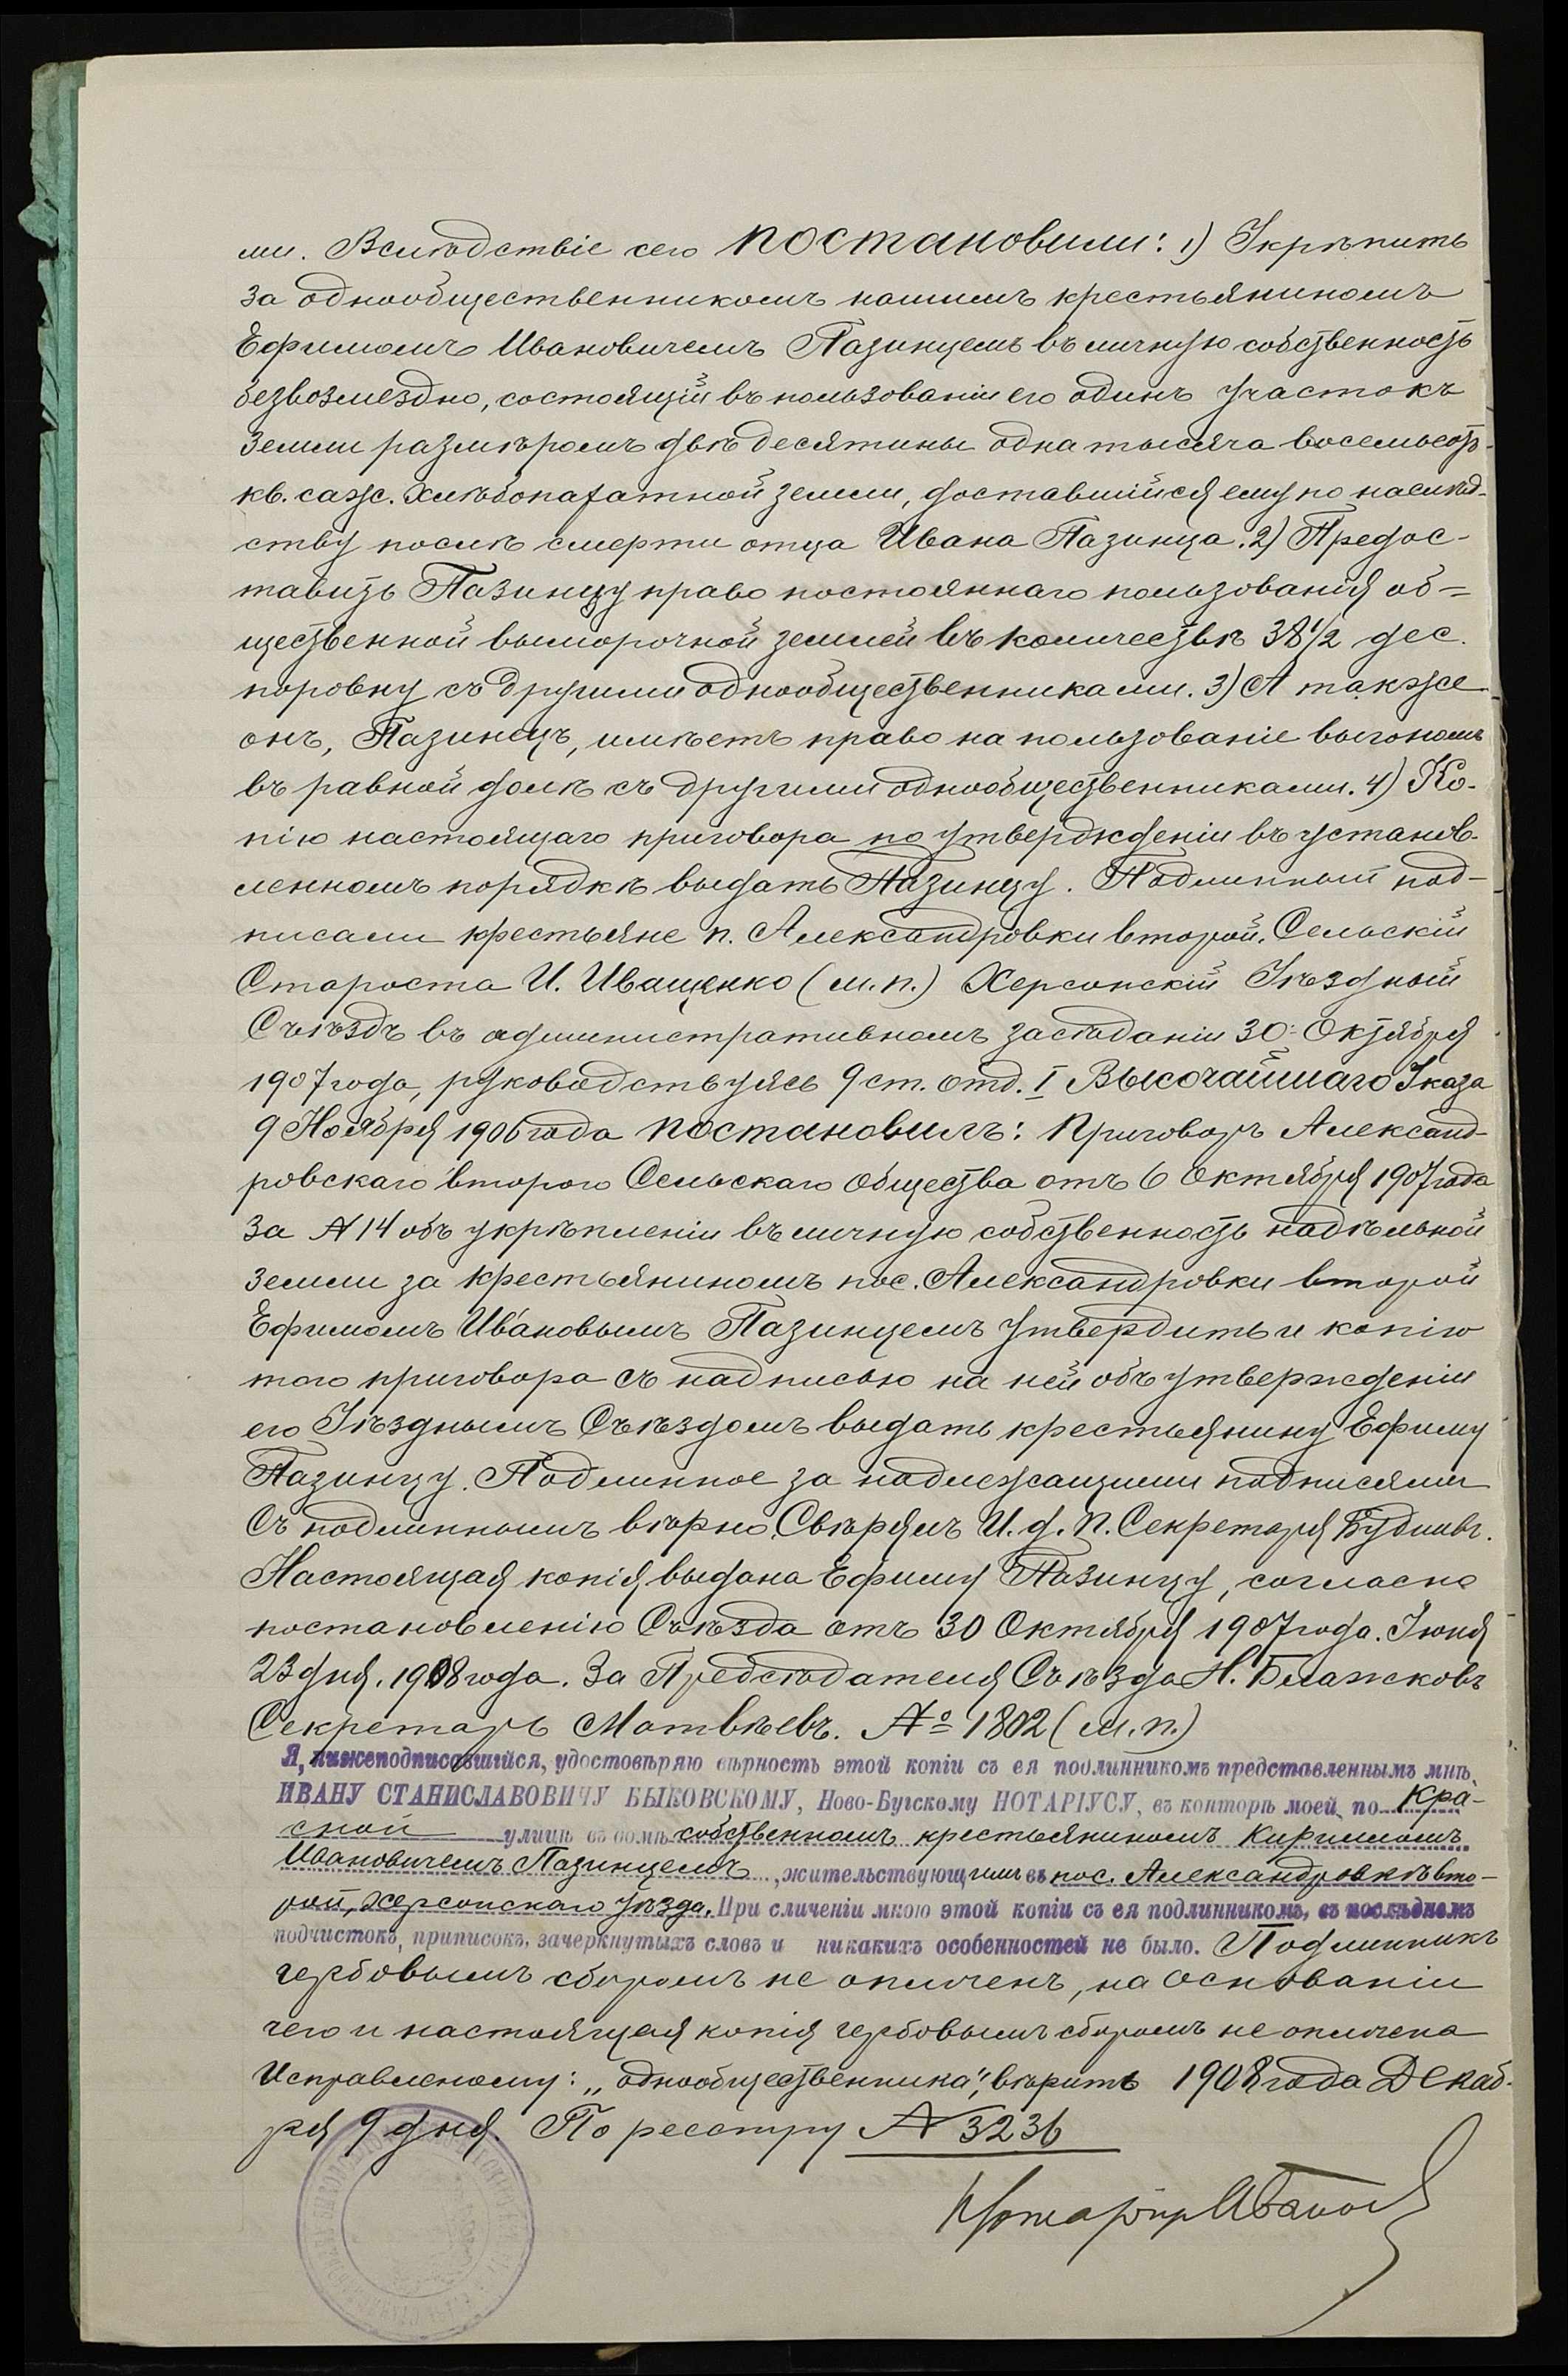 ми. Вслѣдствіе сего постановили: 1) Укрѣпить
за однообщественникомъ нашимъ крестьяниномъ
Ефимомъ Ивановичемъ Пазинцемъ въ личную собственность
безвозмездно, состоящій въ пользованіи его одинъ участокъ
земли размѣромъ двѣ десятины одна тысяча восемьсотъ
кв. саж. хлѣбопахатной земли, доставшійся ему по наслѣд-
ству послѣ смерти отца Ивана Пазинца. 2) Предос-
тавить Пазинцу право постояннаго пользованія об=
щественной выморочной землей въ количествѣ 38 1/2 дес.
поровну съ другими однообщественниками. 3) А также
онъ, Пазинецъ, имѣетъ право на пользованіе выгономъ
въ равной долѣ съ другими однообщественниками. 4) Ко-
пію настоящаго приговора по утвержденіи въ установ-
ленномъ порядкѣ выдать Пазинцу. Подлинный под-
писали крестьяне п. Александровки второй. Сельскій
Староста И. Иващенко (м.п.) Херсонскій Уѣздный
Съѣздъ въ административномъ засѣданіи 30 Октября
1907 года, руководствуясь 9 ст. отд. I Высочайшаго Указа
9 Ноября 1906 года постановилъ: Приговоръ Александ-
ровскаго второго Сельскаго Общества отъ 6 Октября 1907 года
за № 14 объ укрѣпленіи въ личную собственность надѣльной
земли за крестьяниномъ пос. Александровки второй
Ефимомъ Ивановымъ Пазинцемъ утвердить и копію
того приговора съ надписью на ней объ утвержденіи
его Уѣзднымъ Съѣздомъ выдать крестьянину Ефиму
Пазинцу. Подлинное за надлежащими подписями
Съ подлиннымъ вѣрно. Свѣрялъ И. д. п. Секретаря
Настоящая копія выдана Ефиму Пазинцу, согласно
постановленію Съѣзда отъ 30 Октября 1907 года. Іюня
23 дня. 1908 года. За Предсѣдателя Съѣзда Н. Блажковъ
Секретарь Матвѣевъ. № 1802 (м.п.)
Я, нижеподписавшійся, удостовѣряю вѣрность этой копіи съ ея подлинникомъ представленнымъ мнѣ,
ИВАНУ СТАНИСЛАВОВИЧУ БЫКОВСКОМУ, Ново-Бугскому НОТАРІУСУ, въ конторѣ моей, по Кра-
сной улицѣ въ домѣ собственномъ крестьяниномъ Кирилломъ
Ивановичемъ Пазинцемъ, жительствующимъ въ пос. Александровкѣ вто-
рой, Херсонскаго уѣзда. При сличеніи мною этой копіи съ ея подлинникомъ, въ послѣднемъ
подчистокъ, приписокъ, зачеркнутыхъ словъ и никакихъ особенностей не было. Подлинникъ
гербовымъ сборомъ не оплаченъ, на основаніи
чего и настоящая копія гербовымъ сборомъ не оплачена
Исправленому: „однообщественника", вѣрить 1908 года Декаб-
ря 9 дня. По реестру № 3236
Нотаріусъ